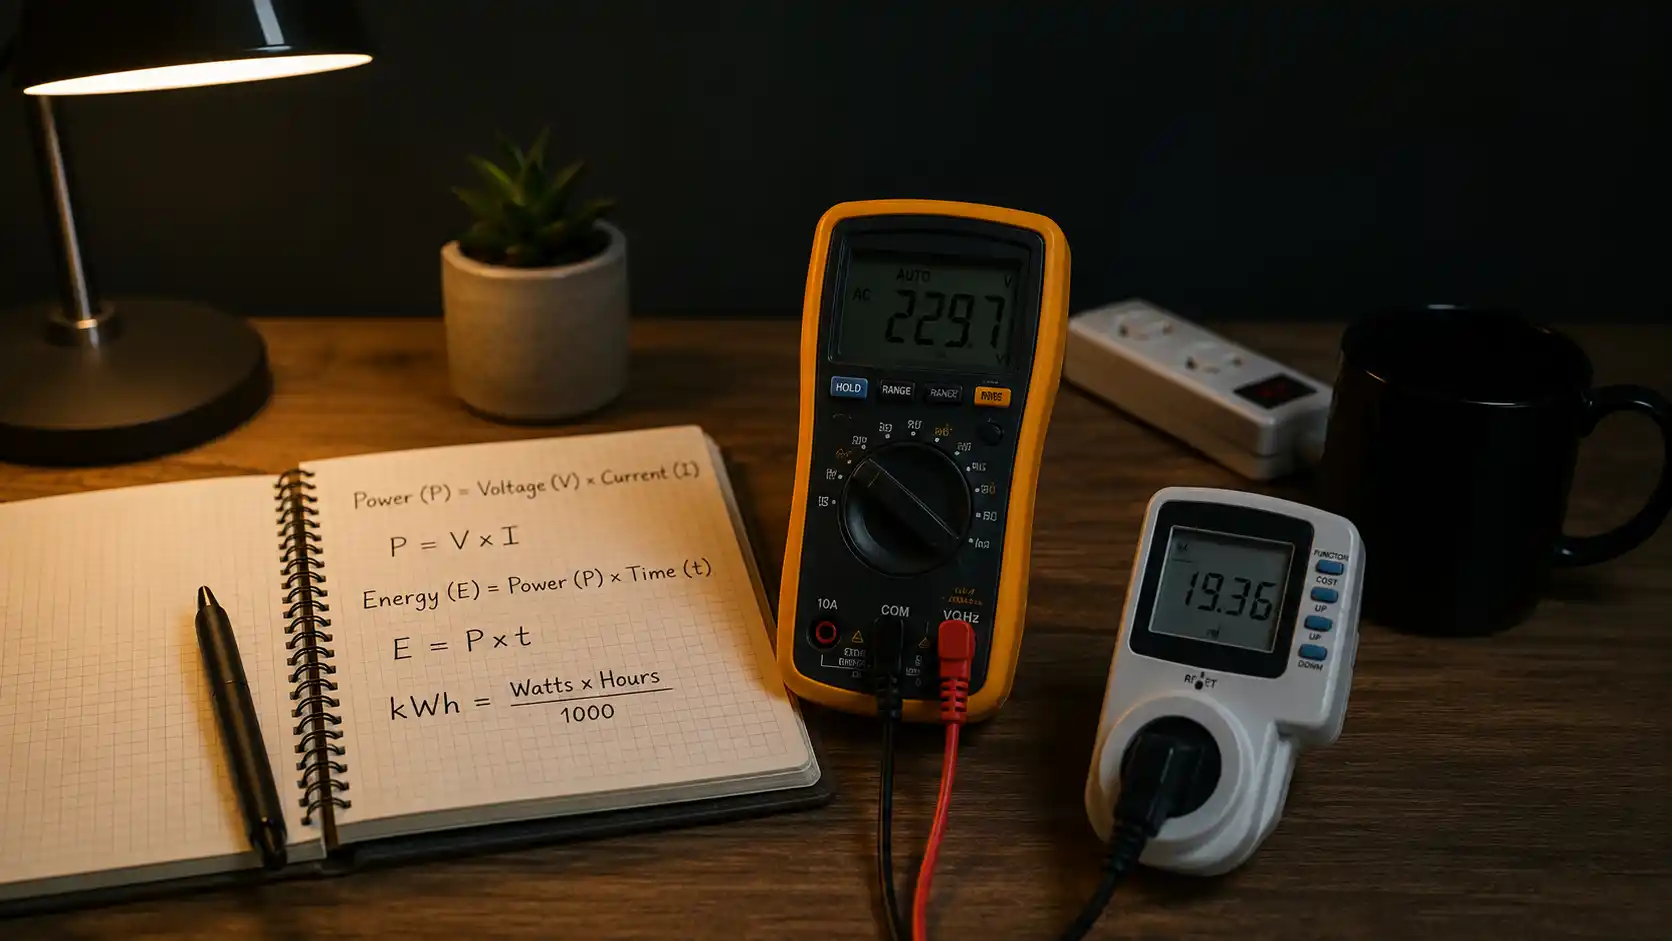 Power (P) = Voltage (V) × Current (I)
P = V × I
Energy (E) = Power (P) × Time (t)
E = P × t
kWh = Watts × Hours
1000
AUTO
V
AC
229.7
V
HOLD
RANGE
RANGE
10A
COM
VΩHz
19.36
FUNCTION
COST
UP
UP
DOWN